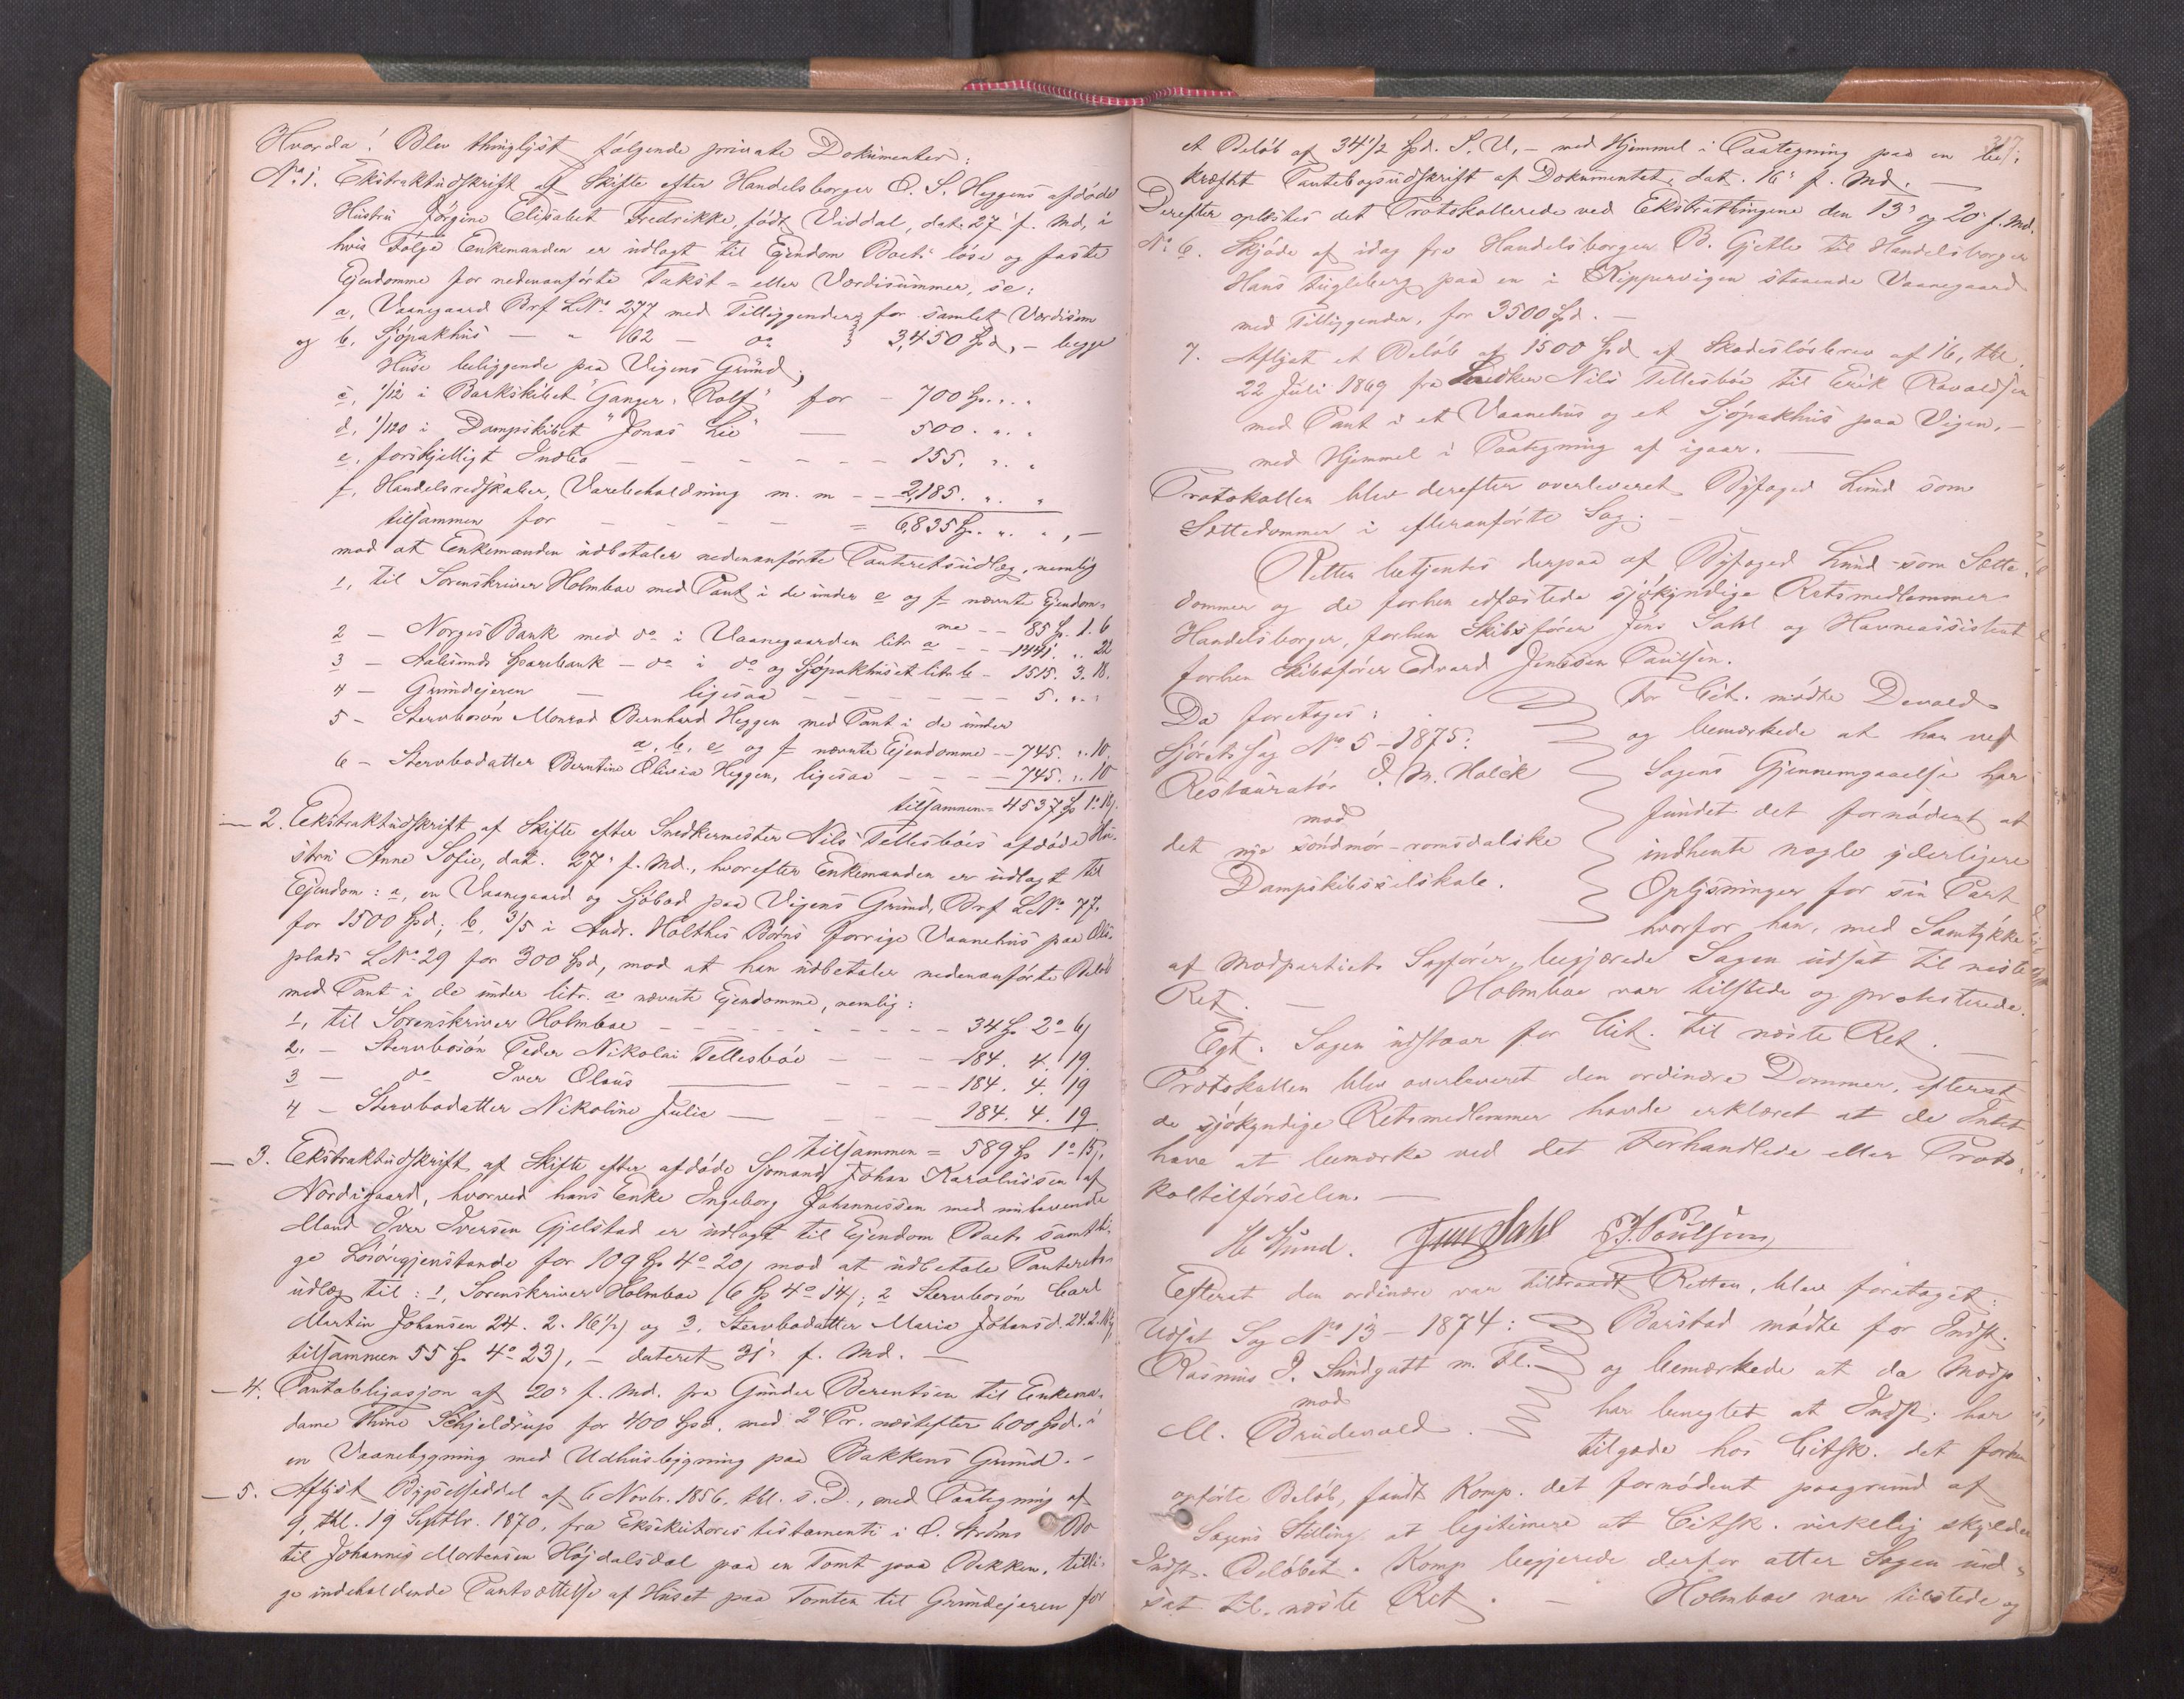 Hvorda! Blev thinglyst følgende private Dokumenter:
No. 1. Ekstraktudskrift af Skifte efter Handelsborger O. S. Heggens afdøde
Hustru Jörgine Elisabet Fredrikke, født Viddal, dat. 27' f. Md., i
hvis Følge Enkemanden er udlagt til Ejendom Boets løse og faste
Ejendomme for nedenanførte Takst= eller Værdisummer, sc:
a, Vaanegaard Brf LNo. 277 med Tilliggender for samlet Værdisum
og b, Sjøpakhus — " 162 — do 3,450 Spd, – begge
Huse beliggende paa Vigens Grund;
c, 1/12 i Barkskibet "Ganger Rolf" for – 700 Sp. " "
d, 1/120 i Dampskibet "Jonas Lie" — 500. " "
e, forskjelligt Indbo — — — — 155. " "
f, Handelsredskaber, Varebeholdning m. m – – 2,185. " "
tilsammen for — — — — = 6,835 Sp. " ", –
mod at Enkemanden udbetaler nedenanførte Panteretsudlæg, nemlig
1, til Sorenskriver Holmboe med Pant i de under e og f nævnte Ejendom=
me – – 85 Sp. 1. 6
2 — Norges Bank med do i Vaanegaarden litr. a – – 1441. " 22
3 — Aalesunds Sparebank – do i do og Sjøpakhuset litr. b – 1515. 3. 18.
4 — Grundejeren — ligesaa — — — 5. " "
5 – Stervbosøn Monrad Bernhard Heggen med Pant i de under
a, b, e og f nævnte Ejendomme – – 745. " 10.
6 – Stervbodatter Berntine Olivia Heggen, ligesaa – – – 745. " 10
tilsammen = 4537 Sp 1 " 18/.
— 2. Ekstraktudskrift af Skifte efter Snedkermester Nils Tellesbøs afdøde Hu-
stru Anne Sofie, dat. 27' f. Md., hvorefter Enkemanden er udlagt til
Ejendom: a, en Vaanegaard og Sjøbod paa Vigens Grund, Brf LNo 77,
for 1500 Spd; b, 3/5 i Andr. Holthes Børns forrige Vaanehus paa
plads LNo 29 for 300 Spd, mod at han udbetaler nedenanførte Beløb
med Pant i de under litr. a nævnte Ejendomme, nemlig:
1, til Sorenskriver Holmboe – – – – – – – 34 Sp 2 " 6/
2. – Stervbosøn Peder Nikolai Tellesbøe – – – – 184. 4. 19.
3 – do Iver Olaus — – – – 184. 4. 19
4 – Stervbodatter Nikoline Julie — – – – 184. 4. 19.
tilsammen = 589 Sp 1 " 15/.
— 3. Ekstraktudskrift af Skifte efter afdøde Sjømand Johan Karolussen af
Nordigaard, hvorved hans Enke Ingeborg Johannessen med nulevende
Mand Iver Iversen Gjelstad er udlagt til Ejendom Boets samtli-
ge Løsøregjenstande for 109 Sp 4 " 20/ mod at udbetale Panterets-
udlæg til: 1, Sorenskriver Holmboe (6 Sp 4 " 14/; 2 Stervbosøn Carl
Martin Johansen 24. 2. 16½) og 3. Stervbodatter Maria Johansd. 24. 2. 16½,
tilsammen 55 Sp 4 " 23/, – dateret 31' f. Md. —
— 4. Pantobligasjon af 20' f. Md. fra Gunder Berentsen til Enkema-
dame Thrine Schjeldrup for 400 Spd. med 2' Pr. næstefter 600 Spd. i
en Vaanebygning med Udhusbygning paa Bakkens Grund. –
— 5. Aflyst Bygselseddel af 6 Novbr. 1856, thl. s. D., med Paategning af
9, thl. 19 Septbr. 1870, fra Eksekutores testamenti i O. Strøms Bo
til Johannes Mortensen Højdalsdal paa en Tomt paa Bakken, tilli-
ge indeholdende Pantsættelse af Huset paa Tomten til Grundejeren for
317
et Beløb af 34½ Spd. S. V., – med Hjemmel i Paategning paa en be-
kræftet Pantebogsudskrift af Dokumentet, dat. 16' f. Md. —
Derefter oplæstes det Protokollerede ved Ekstrathingene den 13' og 20' f. Md.
No. 6. Skjøde af idag fra Handelsborger B. Gjetle til Handelsborger
Hans Fugleberg paa en i Kippervigen staaende Vaanegaard
med Tilliggender, for 3500 Spd. —
7. Aflyst et Beløb af 1500 Spd af Skadesløsbrev af 16, thl.
22 Juli 1869 fra Snedker Nils Tellesbøe til Erik Ravaldsen
med Pant i et Vaanehus og et Sjøpakhus paa Vigen, –
med Hjemmel i Paategning af igaar. —
Protokollen blev derefter overleveret Byfoged Lund som
Sættedommer i efteranførte Sag. —
Retten betjentes derpaa af Byfoged Lund som Sætte-
dommer og de forhen edfæstede sjøkyndige Retsmedlemmer
Handelsborger, forhen Skibsfører Jens Dahl og Havneassistent
forhen Skibsfører Edvard Jentssen Paulsen.
Da foretoges:
Sjørets Sag No 5 – 1875:
Restauratør I. M. Holck
mod
det nye söndmör-romsdalske
Dampskibsselskab.
For Cit. mødte Devold
og bemærkede at han ved
Sagens Gjennemgaaelse har
fundet det fornødent at
indhente nogle yderligere
Oplysninger for sin Part
hvorfor han, med Samtykke
af Modpartiets Sagfører, begjærede Sagen udsat til næste
Ret. — Holmboe var tilstede og protesterede.
Egt. Sagen udstaar for Cit. til næste Ret. —
Protokollen blev overleveret den ordinære Dommer, efterat
de sjøkyndige Retsmedlemmer havde erklæret at de Intet
have at bemærke ved det Forhandlede eller Proto-
koltilførselen. —
H Lund. Jens Dahl E J. Poulsen
Efterat den ordinære var tiltraadt Retten, blev foretaget:
Udsat Sag No 13 – 1874:
Rasmus I. Sundgatt m. Fl. –
mod
M. Brudevold.
Barstad mødte for Indst.
og bemærkede at da Modp.
har benegtet at Indst. har
tilgode hos Citsk. det forhen
opførte Beløb, fandt Komp. det fornødent paagrund af
Sagens Stilling at legitimere at Citsk. virkelig skylder
Indst. Beløbet. Komp. begjerede derfor atter Sagen ud-
sat til næste Ret. — Holmboe var tilstede og